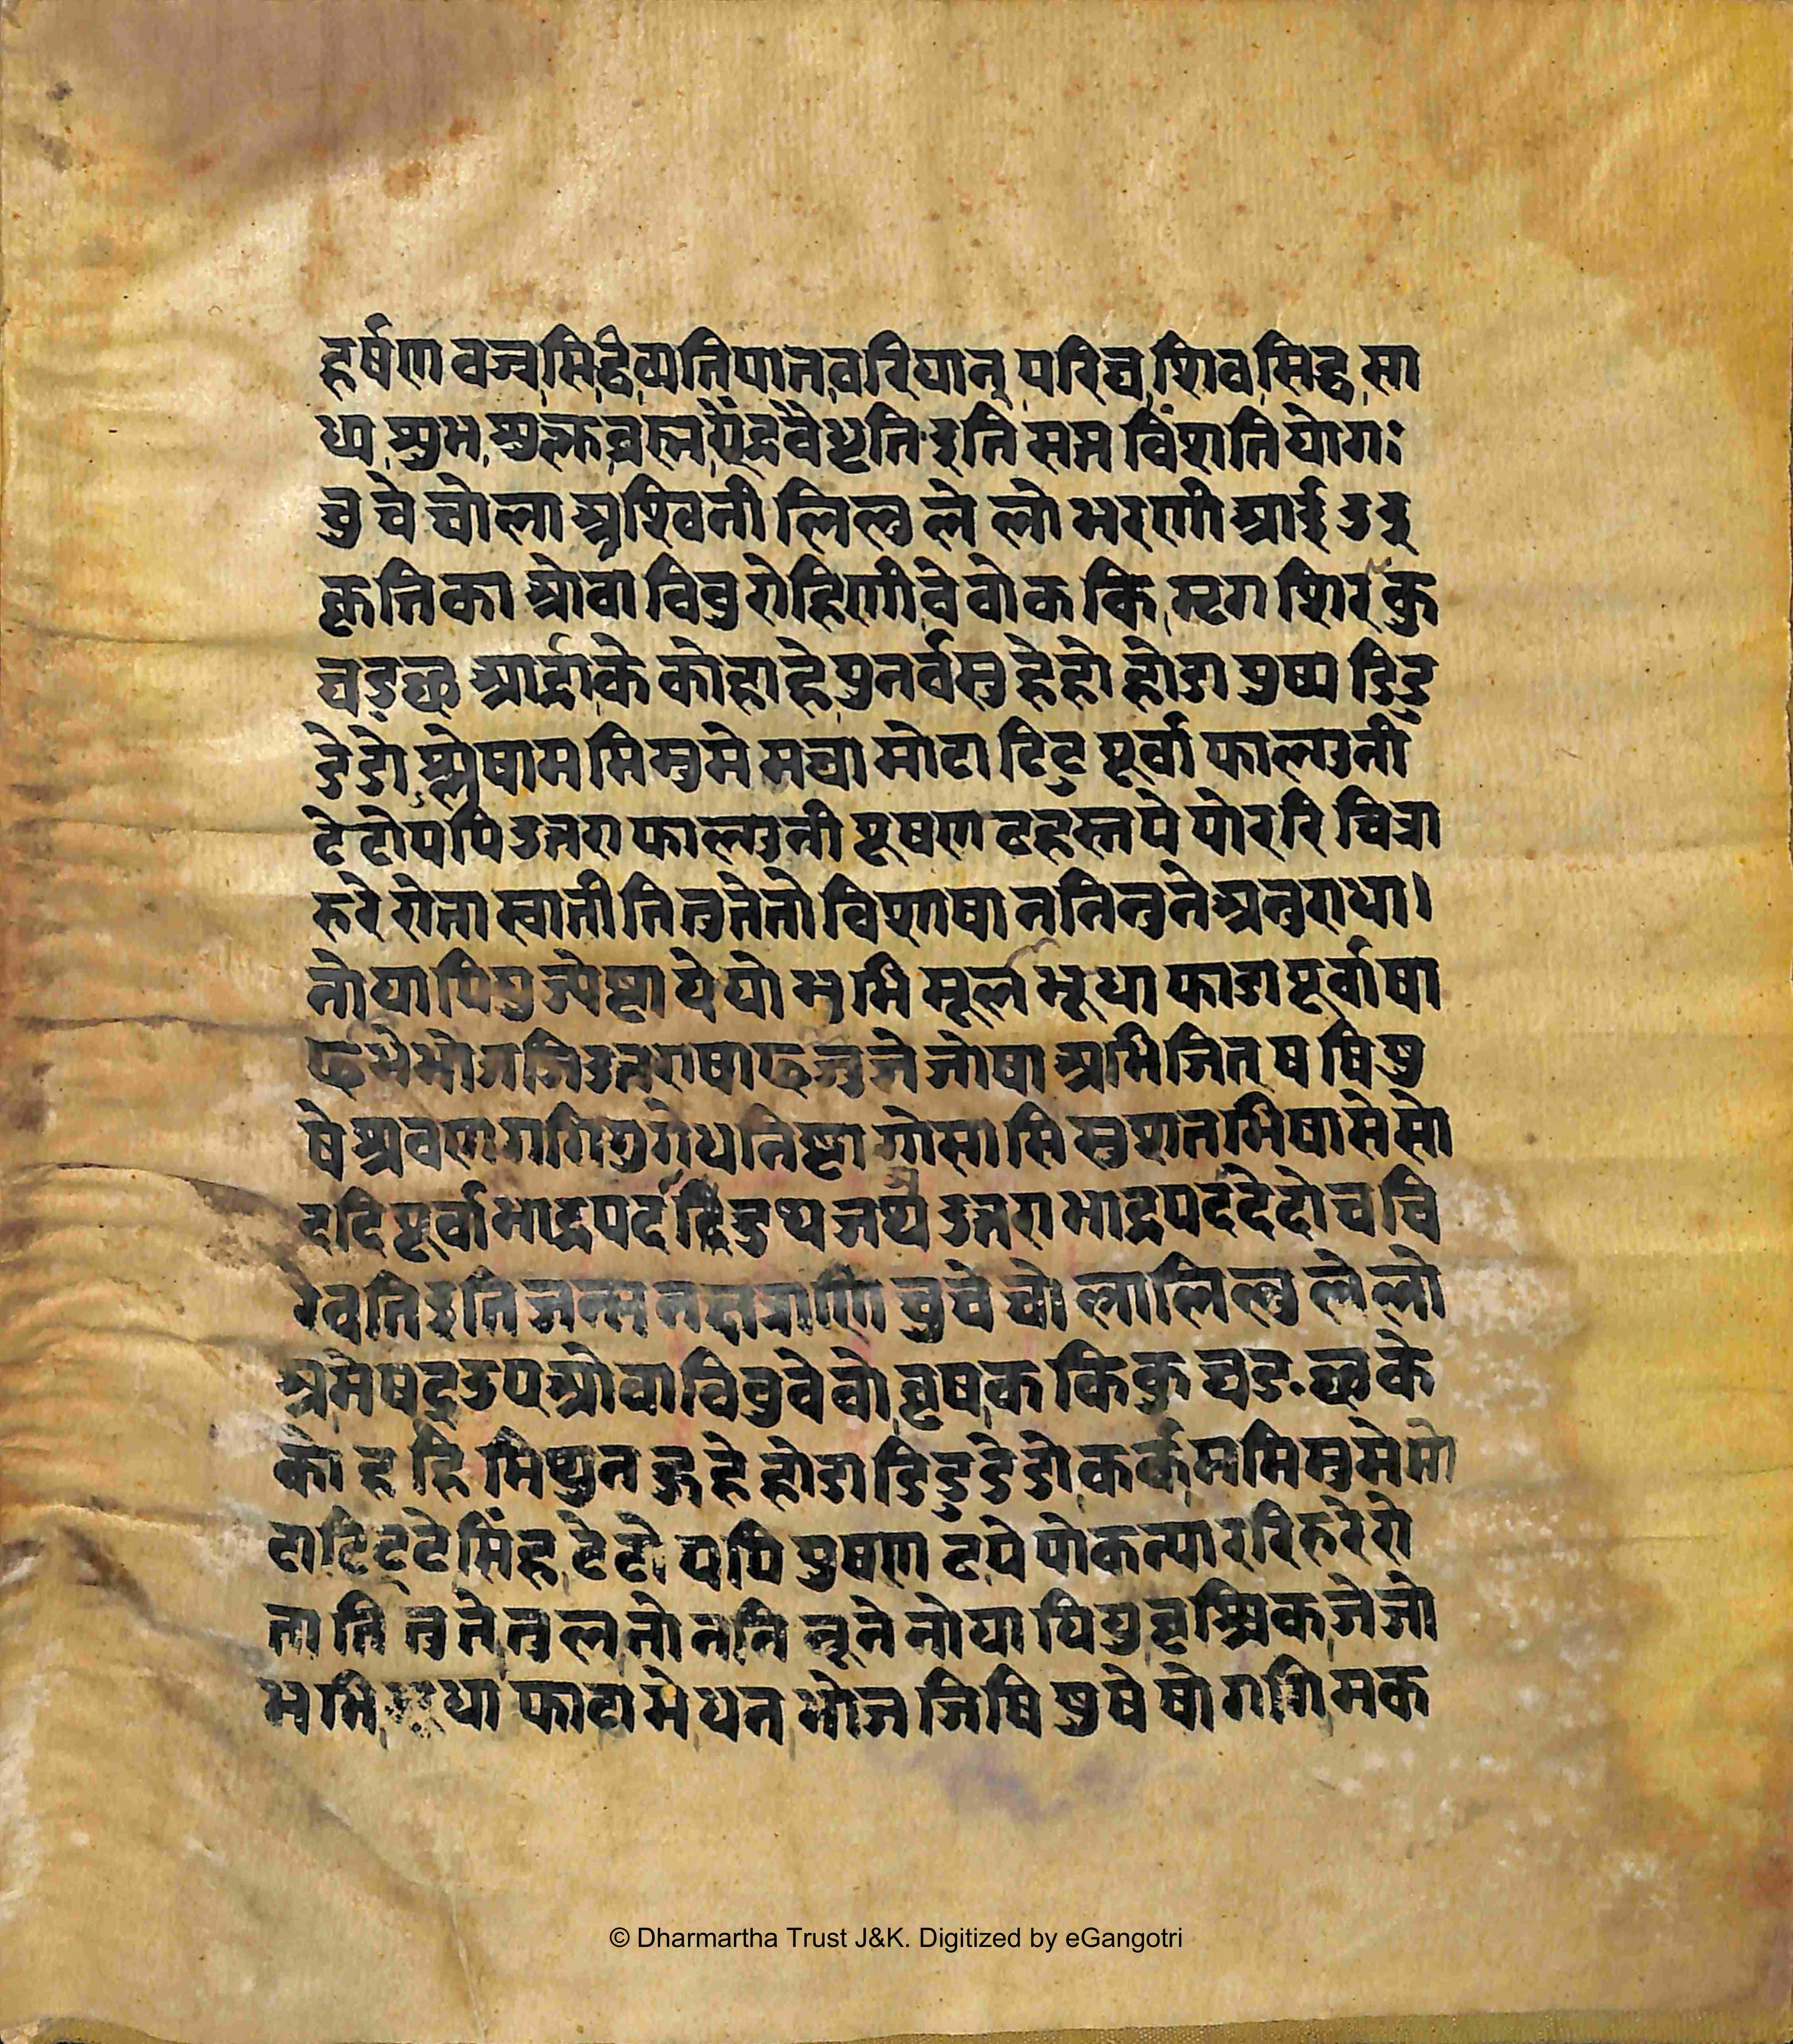 हर्षण वज्रसिद्धिव्यतिपातवरियान् परिघ शिव सिद्ध सा
ध्य शुभ शुक्ल ब्रह्मऐंद्रवैधृति इति सप्त विंशति योगः
चु चे चोला अश्विनी लि लु ले लो भरणी आ ई उ इ
कृत्तिका ओवा वि वु रोहिणी वे वो क कि मृग शिर कु
घ ङ छ आर्द्रा के को हा हे पुनर्वसु हे हो होडा पुष्य डि डु
डे डो श्लेषा म मि मु मे मघा मो टा टि टु पूर्वा फाल्गुनी
टे टो प पि उत्तरा फाल्गुनी पू ष ण ठ हस्त पे पो र रि चित्रा
रु रे रो ता स्वाती ति तु ते तो विशाषा न नि नु ने अनुराधा।
नो या यि यु ज्येष्टा ये यो भ भि मूल भू धा फा डा पूर्वाषा
ढ भे भो ज जि उत्तराषाढ जु जे जो षा अभिजित् ष षि षु
षे श्रवण ग गि गु गे धनिष्टा गो सा सि सु शतभिषा से सो
द दि पूर्वाभाद्रपद दि दु थ्य ज थ्य उत्तराभाद्रपद दे दो च चि
रेवति इति जन्म नक्षत्राणि चु चे चो ला लि लु ले लो
अ मेष इ उ प ओ वा वि वु वे वो वृष क कि कु घ ङ छ के
को ह हि मिथुन हु हे हो डा डि डु डे डो कर्क म मि मु मे मो
टा टि टु टे सिंह टे टो प पि पु ष ण ठ पे पो कन्या र रि रु रे रो
ता ति तु ते तुल तो न नि नू ने नो या यि यु वृश्चिक जे जो
भ भि भू धा फा ढा भे धन भो ज जि षि षु षे षो ग गि मक
© Dharmartha Trust J&K. Digitized by eGangotri